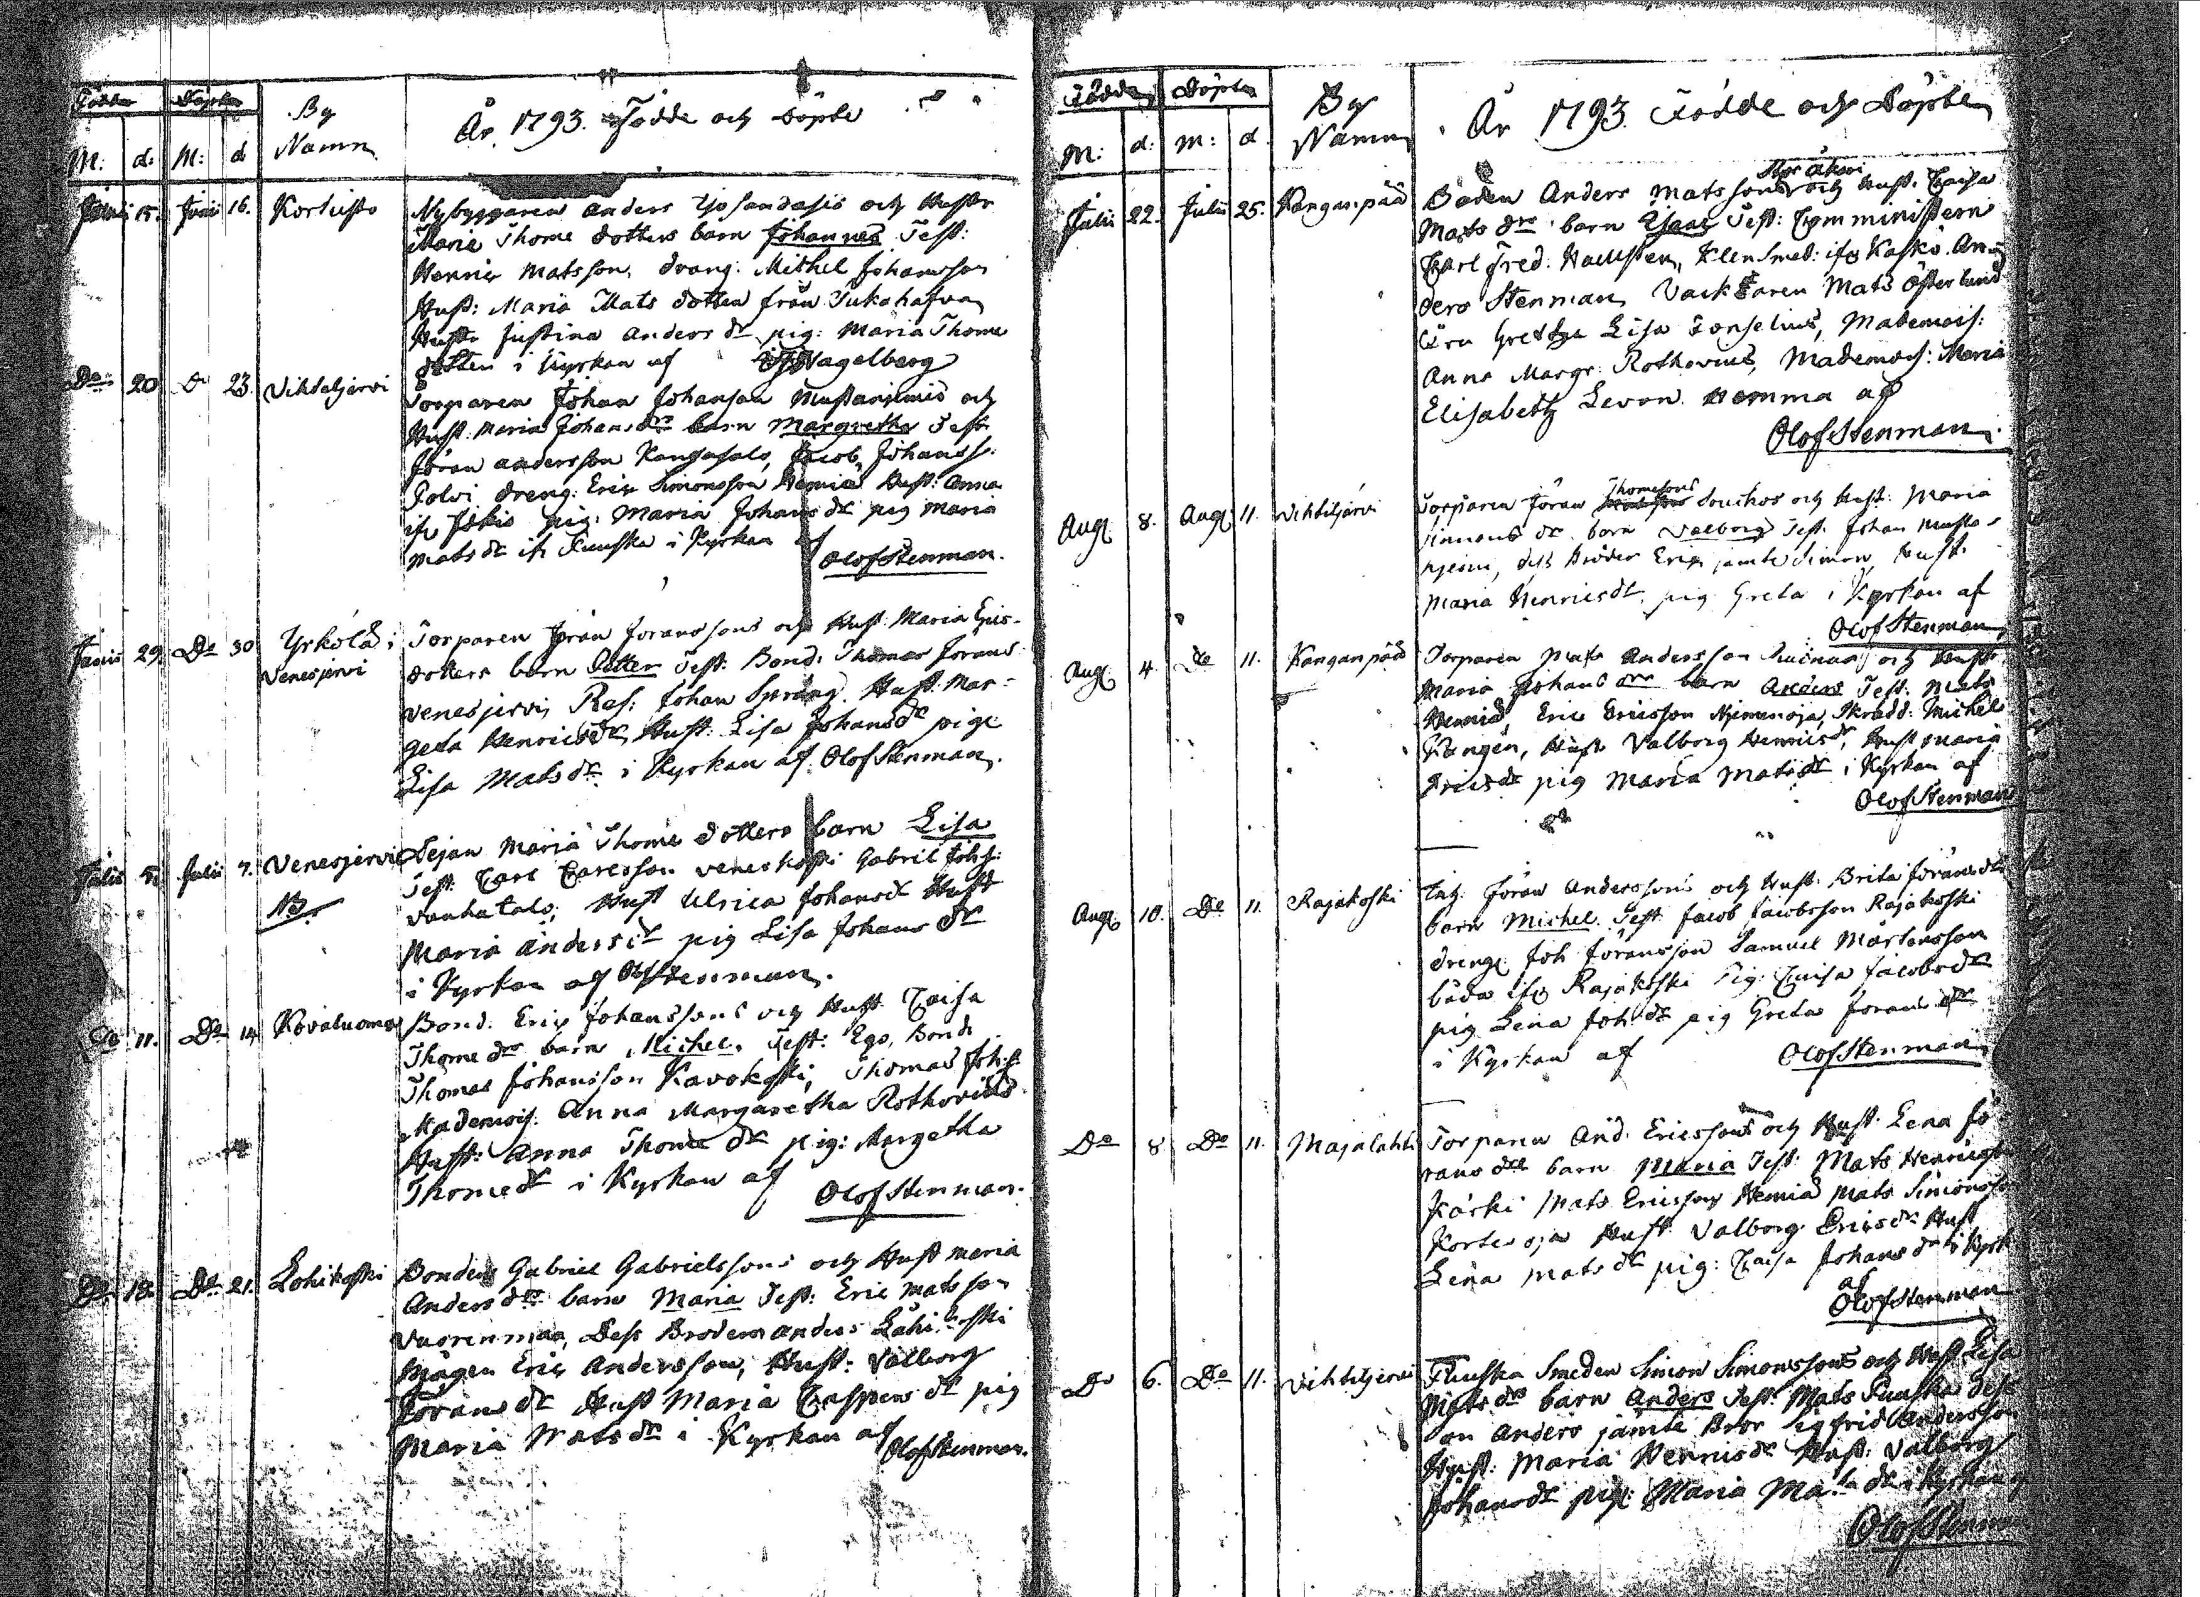 Födde Döpte By Namn År 1793. Födde och Döpte
M: d. M: d
Junii 15. Junii 16. Kortesto Nybyggaren Anders och Hustr
Maria Thome dotters barn Johannes Test:
Henric Matsson, dräng: Michel Johansson
Hust: Maria Mats dotter från
Hustr Justina Anders dr pig: Maria Thome
dotter i Kyrkan af Nagelberg
Do 20 Do 23. Vihteljervi Torparen Johan Johanson Mustaniemis och
Hust: Maria Johans drs barn Margretha Test:
Jöran Andersson Kangasalo, Jacob Johanss:
Polvi dreng: Eric Simonsson Hemiä Hust: Anna
ifr Jokis pig: Maria Johans dr pig Maria
Mats dr ifr Fuuska i Kyrkan af
Olof Stenman.
Junii 29. Do 30 Yrkölä i Venesjervi Torparen Jöran Joranssons och Hust. Maria Erics-
dotters barn Petter Test: Bond: Thomas Jorans
Venesjervi, Res: Johan Spräng. Hust. Mar-
geta Henricsdr, Hust: Lisa Johansdr pige
Lisa Mats dr i Kyrkan af Olof Stenman.
Julii 5. Julii 7. Venesjervi Pejan Maria Thome dotters barn Lisa
NB. Test. Carl Carlsson Veneskoski Gabriel Johs:
Vanhatalo, Hust Ulrica Johansdr Hustr
Maria Anders dr pig Lisa Johans dr
i Kyrkan af Ol Stenman.
Do 11. Do 14 Kovaluoma Bond. Eric Johanssons och Hust Caisa
Thome drs barn Michel. Test: Ego, Bond.
Thomas Johansson Kavokoski, Thomas Johss.
Mademois. Anna Margaretha Rothovius
Hust: Anna Thome dr pig: Margetha
Thomedr i Kyrkan af Olof Stenman.
Do 18. Do 21. Lohikoski Bonden Gabriel Gabrielssons och Hust Maria
Anders drs barn Maria Test: Eric Matsson
Vuorenmaa, Dess Broder Anders Lähikoski
Mågen Eric Andersson, Hust: Valborg
Jörans dr Hust Maria Caspers dr pig
Maria Mats dr i Kyrkan af
Olof Stenman.
Födde Döpte By Namn År 1793. Födde och Döpte
M: d: M: d
Julii 22. Julii 25. Kanganpää Boden Anders Matssons och Hust. Caisa
Mats drs barn Isaac Test: Comministern
Carl Fred: Hallsten, Klensmed: ifr Kaskö An-
ders Stenman, Vacktaren Mats Österlund
Gretha Lisa Forselius, Mademois:
Anna Margr. Rothovius, Mademois: Maria
Elisabeth Levon hemma af
Olof Stenman.
Aug. 8. Aug. 11. Vihteljärvi Torparen Jöran Thomesons Souckos och Hust: Maria
Simons dr barn Valborg Test. Johan Musta-
njemi, dess Broder Eric jemte Simon, Hust.
Maria Henricsdr, pig Greta i Kyrkan af
Olof Stenman
Aug. 4. Do 11. Kangenpää Torparen Mats Andersson och Hust
Maria Johans drs barn Anders Test. Mats
Hemiä, Eric Ericsson Njemenoja, Skrädd: Michel
Flangén, Hust Valborg Henricsdr, Hust Maria
Ericsdr pig Maria Matsdr i Kyrkan af
Olof Stenman
Aug. 10. Do 11. Rajakoski Jöran Anderssons och Hust: Brita Jöransdrs
barn Michel. Test. Jacob Jacobsson Rajakoski
dreng. Joh Joransson Samuel Mårtensson
båda ifr Rajakoski Pig: Caisa Jacobsdr
pig Lena Joh dr pig Greta Jorans dr
i Kyrkan af Olof Stenman
Do 8 Do 11. Majalahti Torparen And. Ericssons och Hust. Lena Jö
rans drs barn Maria Test. Mats Henricson
Kärki Mats Ericsson Hemiä Mats Simonsson
Kortesoja Hust. Valborg Ericsdr Hust
Lena Mats dr pig: Caisa Johans dr i Kyrk
af
Olof Stenman
Do 6. Do 11. Vihteljervi Fuuska Smeden Simon Simonssons och Hust Lisa
Mats drs barn Anders Test. Mats Fuuska dess
son Anders jämte Bror Sigfrid Andersson
Hust: Maria Henricsdr Hust: Valborg
Johansdr pig: Maria Mats dr i Kyrkan
Olof Stenman